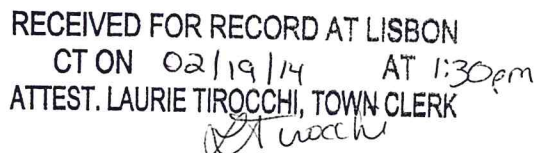 RECEIVED FOR RECORD AT LISBON
CT ON 02/19/14 AT 1:30pm
ATTEST. LAURIE TIROCCHI, TOWN CLERK
LTirocchi